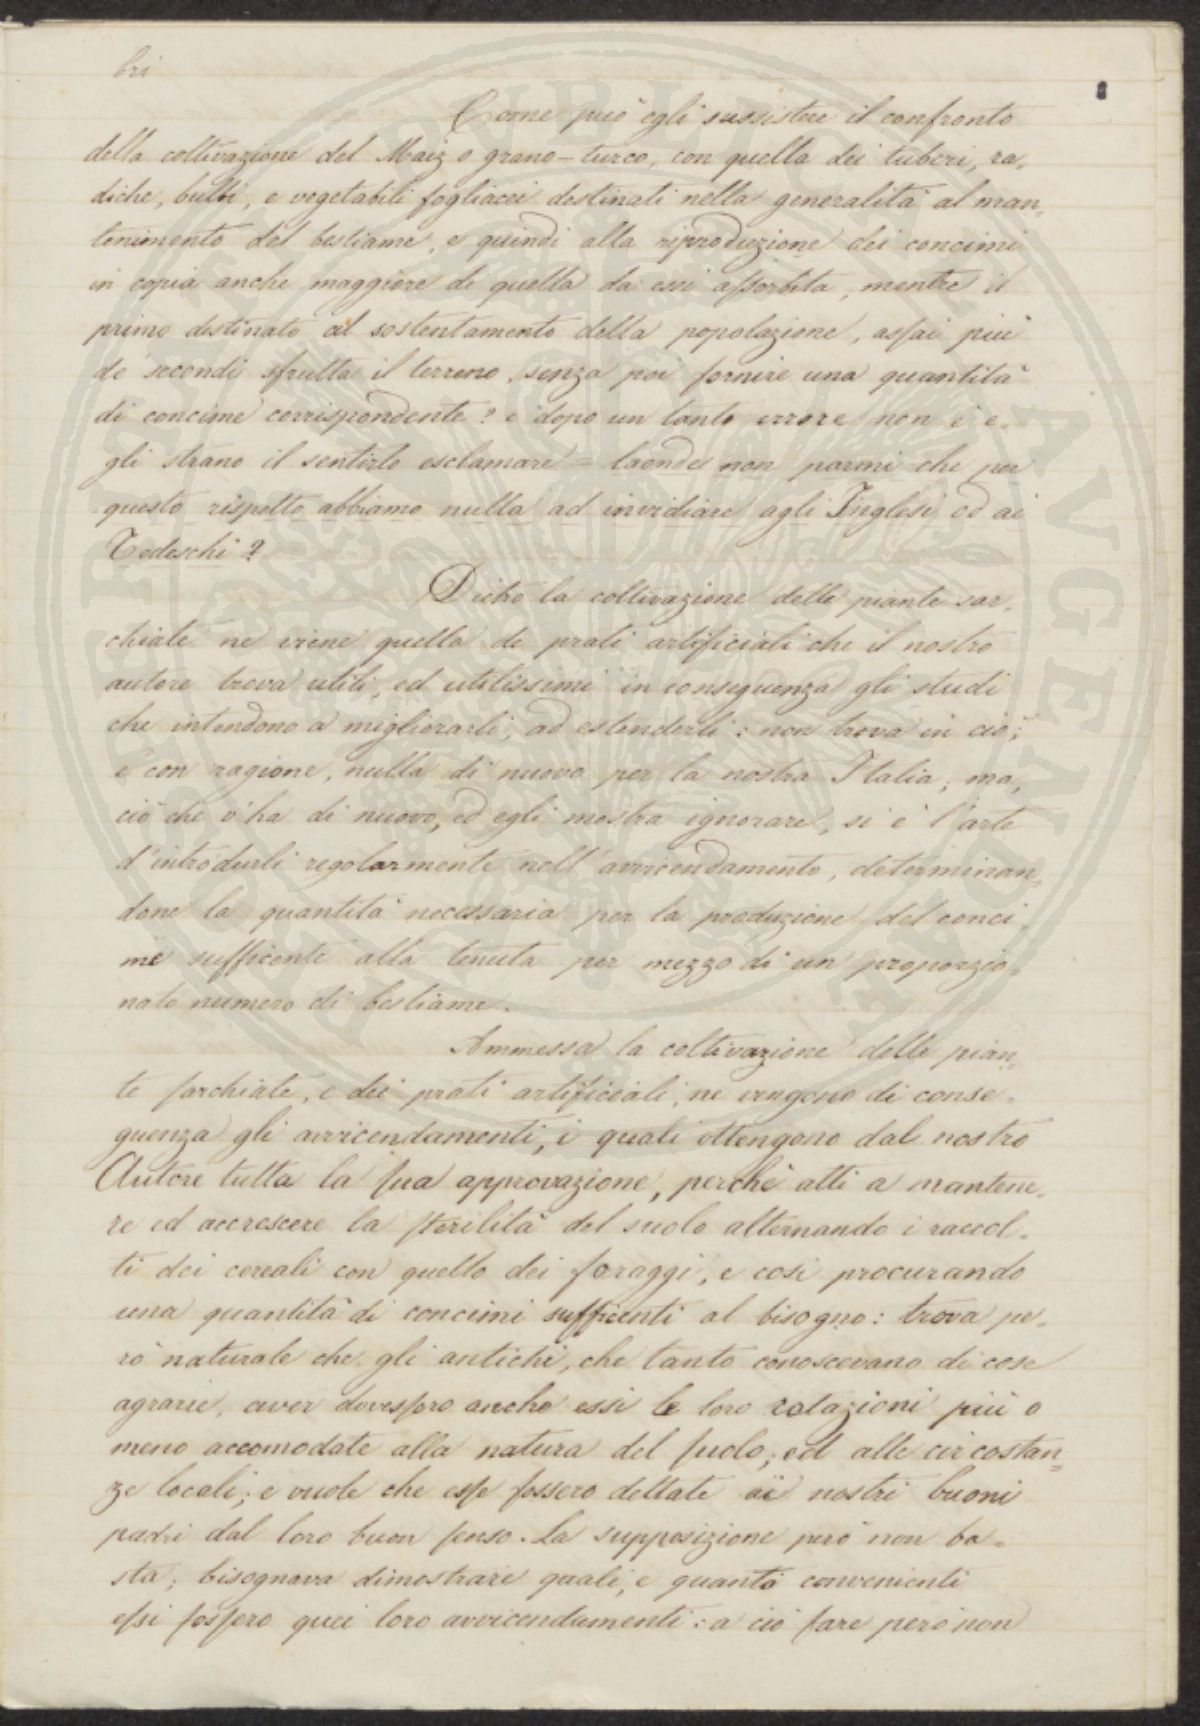 bri
Come può egli sussistere il confronto
della coltivazione del Maiz o grano-turco, con quella dei tuberi, ra-
diche, bulbi, e vegetabili fogliacei destinati nella generalità al man-
tenimento del bestiame, e quindi alla riproduzione dei concimi
in copia anche maggiore di quella da essi assorbita, mentre il
primo destinato al sostentamento della popolazione, assai più
de' secondi sfrutta il terreno, senza poi fornire una quantità
di concime corrispondente? e dopo un tanto errore non è e-
gli strano il sentirlo esclamare = laonde non parmi che per
questo rispetto abbiamo nulla ad invidiare agli Inglesi od ai
Tedeschi?
Dietro la coltivazione delle piante sar-
chiate ne viene quella de prati artificiali che il nostro
autore trova utili, ed utilissimi in conseguenza gli studi
che intendono a migliorarli, ad estenderli: non trova in ciò;
e con ragione, nulla di nuovo per la nostra Italia; ma,
ciò che v'ha di nuovo, ed egli mostra ignorare, si è l'arte
d'introdurli regolarmente nell'avvicendamento, determinan-
done la quantità necessaria per la produzione del conci-
me sufficente alla tenuta per mezzo di un proporzio-
nato numero di bestiame.
Ammessa la coltivazione delle pian-
te sarchiate, e dei prati artificiali, ne vengono di conse-
guenza gli avvicendamenti, i quali ottengono dal nostro
Autore tutta la sua approvazione, perchè atti a mantene-
re ed accrescere la sterilità del suolo alternando i raccol-
ti dei cereali con quello dei foraggi, e così procurando
una quantità di concimi sufficenti al bisogno: trova pe-
rò naturale che gli antichi, che tanto conoscevano di cose
agrarie, aver dovessero anche essi le loro rotazioni più o
meno accomodate alla natura del suolo, ed alle circostan-
ze locali; e vuole che esse fossero dettate ai nostri buoni
padri dal loro buon senso. La supposizione però non ba-
sta; bisognava dimostrare quali, e quanto convenienti
essi fossero quei loro avvicendamenti: a ciò fare però non